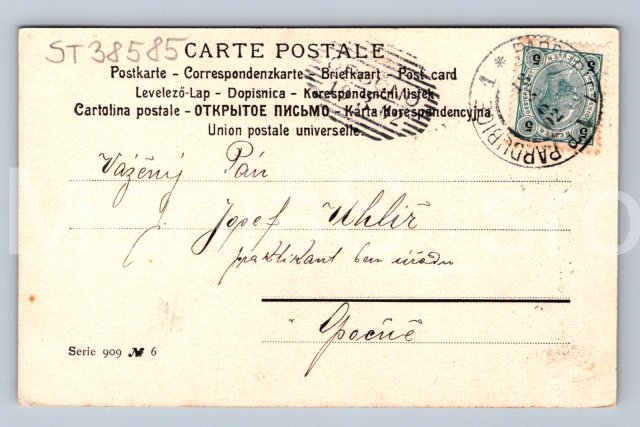 ST38585
CARTE POSTALE
Postkarte - Correspondenzkarte - Briefkaart - Post card
Levelező-Lap - Dopisnica - Korespondenční lístek
Cartolina postale - ОТКРЫТОЕ ПИСЬМО - Karta korespondencyjna
Union postale universelle.
PARDUBICE 1
5 5
Vážený Pán
Josef Uhlíř
praktikant ber. úřadu
Opočně
Serie 909 № 6